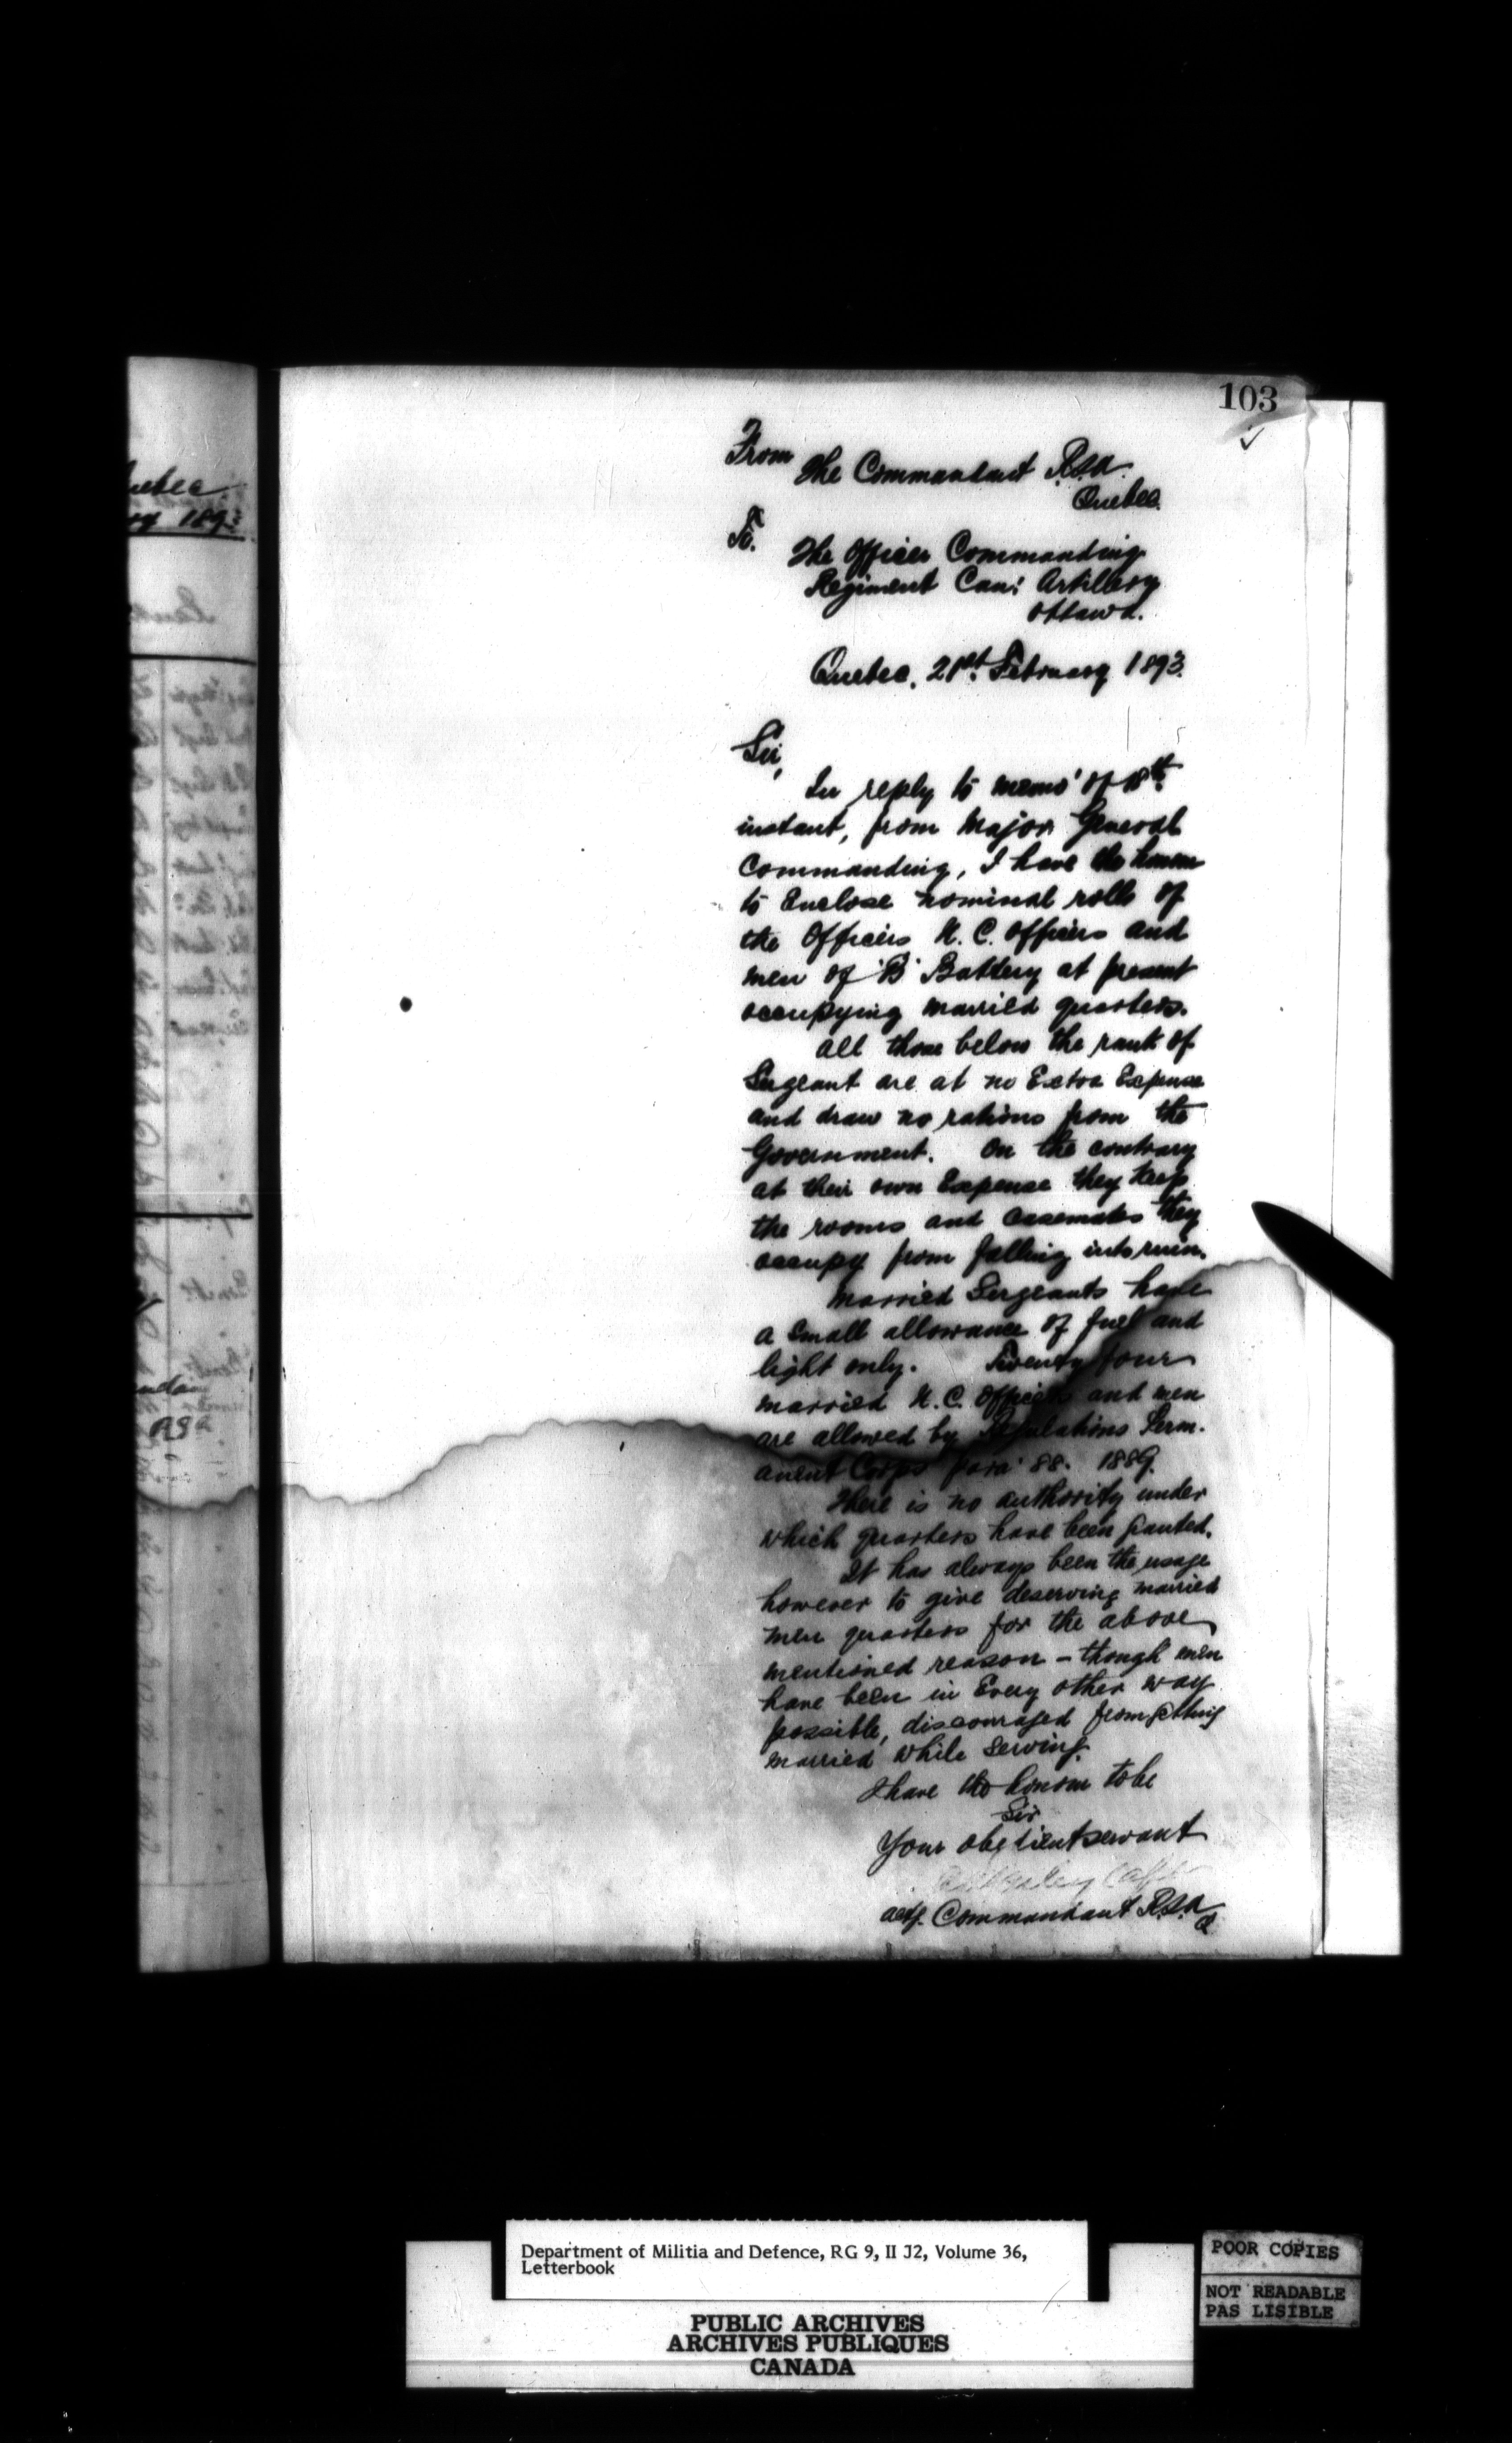 103
From The Commandant R.S.A.
Quebec.
To. The Officer Commanding
Regiment Can: Artillery
Ottawa.
Quebec, 21st February 1893.
Sir,
In reply to memo' of 18th
instant, from Major General
Commanding, I have the honor
to Enclose nominal rolls of
the Officers N. C. Officers and
men of 'B' Battery at present
occupying married quarters.
All those below the rank of
Sergeant are at no Extra Expense
and draw no rations from the
Government. On the contrary
at their own Expense they keep
the rooms and casemates they
occupy from falling into ruin.
Married Sergeants have
a small allowance of fuel and
light only. Twenty four
married N. C. Officers and men
are allowed by Regulations Perm-
anent Corps para' 88. 1889.
There is no authority under
which quarters have been granted.
It has always been the usage
however to give deserving married
men quarters for the above
mentioned reason - though men
have been in Every other way
possible, discouraged from getting
married while serving.
I have the honour to be
Sir
Your obedient servant
actg. Commandant R.S.A.
Quebec
1893
Department of Militia and Defence, RG 9, II J2, Volume 36,
Letterbook
PUBLIC ARCHIVES
ARCHIVES PUBLIQUES
CANADA
POOR COPIES
NOT READABLE
PAS LISIBLE